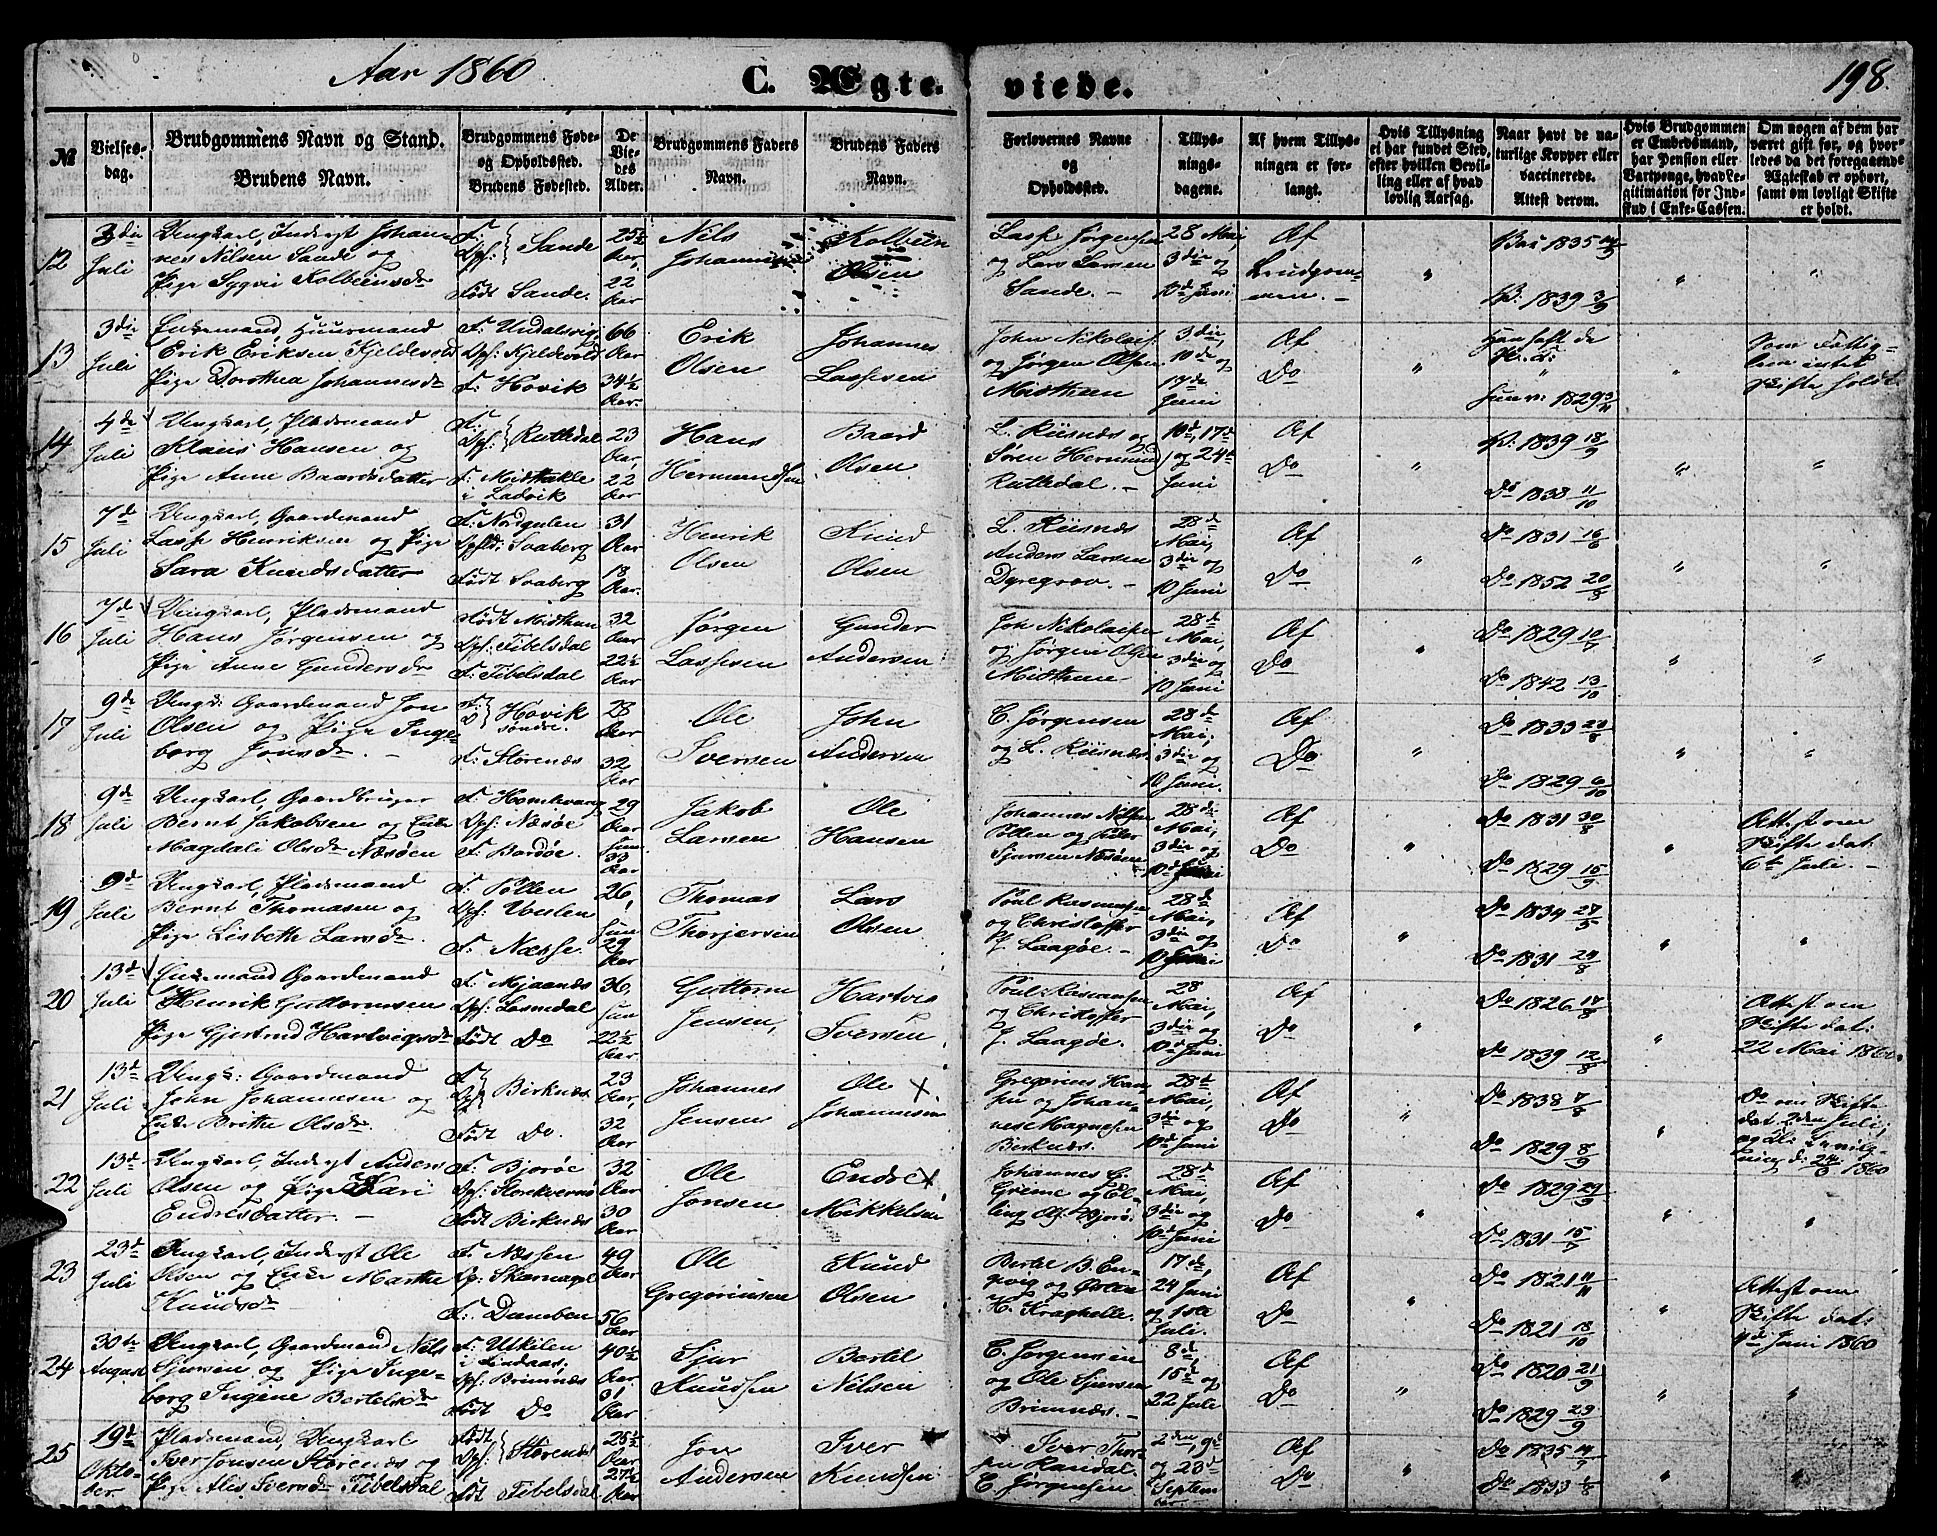 Aar 1860
C. Ægte-viede.
198.
№
Vielses-dag.
Brudgommens Navn og Stand.
Brudens Navn.
Brudgommens Føde-og Opholdssted.
Brudens Fødested.
De Viedes Alder.
Brudgommens Faders Navn.
Brudens Faders Navn.
Forlovernes Navne og Opholdssted.
Tillysningsdagene.
Af hvem Tillysningen er forlangt.
Hvis Tillysning ei har fundet Sted, efter hvilken Bevilling eller af hvad lovlig Aarsag.
Naar havt de naturlige Kopper eller vaccinerede. Attest derom.
Hvis Brudgommen er Embedsmand, har Pension eller Vartpenge, hvad Legitimation for Indskud i Enke-Cassen.
Om nogen af dem har været gift før, og hvorledes da det foregaaende Ægteskab er ophørt, samt om lovligt Skifte er holdt.
12 3die Juli Ungkarl, Inderst Johannes Nilsen Sande og Pige Sygni Kolbeensdr F: Opf: Sande Født Sande. 25½ Aar, 22 Aar Nils Johannesen Kolbeen Olsen Lasse Jørgensen og Lars Larsen Sande. 28 Mai, 3die og 10de Juni Af Brudgommen. 1835 1839 3/9
13 3die Juli Enkemand, Huusmand Erik Eriksen Kjeldevold Pige Dorthea Johannesdr F: Undalsvig Opf: Kjeldevold F: Hovik 66 Aar 34½ Aar. Erik Olsen Johannes Lassesen John Nikolais. og Jørgen Olsen Midthun 3die, 10de og 17de Juni Af Do Han haft de 1829 3/11 Som Fattiglem intet Skifte holdt
14 4de Juli Ungkarl, Pladsmand Klaus Hansen og Pige Anne Baardsdatter F: Opf: Rutledal F: Midttakle i Ladvik 23 Aar, 22 Aar Hans Hermundsen Baard Olsen L. Riisnæs og Søren Hermund Rutledal. 10de, 17de og 24de Juni Af Do 1839 18/9 Do 1838 11/10
15 7de Juli Ungkarl, Gaardmand Lasse Henriksen og Pige Sara Knudsdatter F: Nordgulen Svaberg Født Svaberg 31 Aar 18 Aar. Henrik Olsen Knud Olsen L. Riisnæs Anders Larsen Dyregrov. 28de Mai, 3die og 10 Juni Af Do Do 1831 16/6 Do 1852 20/8
16 7de Juli Ungkarl, Pladsmand Hans Jørgensen og Pige Anne Gundersdr Født Midthun Opf: Tibelsdal F: Tibelsdal 32 Aar 22½ Aar Jørgen Lassesen Gunder Andersen Joh Nikolaisen og Jørgen Olsen Midthun 28de Mai, 3die og 10 Juni Af Do Do 1829 10/7 Do 1842 13/10
17 9de Juli Ungk: Gaardmand Jon Olsen og Pige Ingeborg Jonsdr. F: Hovik søndre. F: Størenæs 28 Aar 32 Aar Ole Iversen John Andersen C. Jørgensen og L. Riisnæs. 28de Mai, 3die og 10 Juni. Af Do Do 1833 Do 1829 6/10
18 9de Juli Ungkarl, Gaardbruger Bernt Jakobsen og Enke Magdali Olsdr Næsøen F: Homhvarg Opf: Næsøe F: Bordøe. 29 Aar 33 Aar Jakob Larsen Ole Hansen Johannes Nilsen Pollen og Peter Sjursen Næsøen 28de Mai, 3die og 10de Juni Af Do Do 1831 30/8 Do 1829 15/9 Attest om Skifte dat: 6te Juli.
19 9de Juli Ungkarl, Pladsmand Bernt Thomasen og Pige Lisbeth Larsdr. F: Pollen Opf: F: Næsse. 26, 29 Aar Thomas Thorjersen Lars Olsen Poul Rasmussen og Christoffer J. Laagøe. 28de Mai, 3die og 10 Juni Af Do Do 1834 27/5 Do 1831 24/8
20 13de Juli Enkemand Gaardmand Henrik Guttormsen Pige Gjertrud Hartvigsdr F: Mjaanæs Opf: Lasnedal Født Do 36, 22½ Aar. Guttorm Jensen, Hartvig Iversen Poul Rasmussen og Christoffer J. Laagøe. 28 Mai, 3die og 10de Juni Af Do Do 1826 17/8 Do 1839 12/8 Attest om Skifte dat: 22 Mai 1860.
21 13de Juli Ungk: Gaardmand John Johannesen og Enke Brithe Olsdr F: Opf: Birknæs Født Do. 23 Aar, 32 Aar Johannes Jensen Ole Johannesen Gregorius Hansen og Johannes Magnesen Birknæs. 28de Mai, 3die og 10de Juni Af Do Do 1838 7/9 Do 1829 8/9 Do om Skifte dat 2den Juli, 1860
22 13de Juli Ungkarl, Inderst Anders Olsen og Pige Kari Endresdatter. F: Bjorøe Opf: Storekvernø Født Birknæs 32 Aar 30 Aar Ole Jonsen Endre Mikkelsen Johannes Grinne og Elling Ols. Bjorø. 28de Mai, 3die og 10de Juni Af Do Do 1829 29/9 Do 1831 15/7
23 23de Juli Ungkarl, Inderst Ole Olsen og Enke Marthe Knudsdr F: Næssen Opf: Skarnagel F: Dambøen 49 Aar 56 Aar Ole Gregoriusen Knud Olsen Bertel B. og Østen H. Kraghelle. 17de, 24 Juni og 1ste Juli. Af Do Do 1821 11/11 Do 1821 18/10 Attest om Skifte dat: 4de Juni 1860
24 30te August Ungkarl, Gaardmand Nils Sjursen og Pige Ingeborg Ingine Bertelsdr F: Utkilen i Lindaas. Opf: Brimnæs Født Do 40½ Aar 31 Aar Sjur Knudsen Bertel Nilsen C. Jørgensen og Ole Sjursen Brimnæs. 8de 15de og 22 Juli Af Do Do 1820 21/9 Do 1829 29/9
25 19de Oktober Pladsmand, Ungkarl Iver Jonsen Størenæs og Pige Alis Iversdr Tibelsdal Født Opf: Størenæs Født Tibelsdal 25½ Aar 27½ Aar Jon Andersen Iver Knudsen Iver Thorsen Randal. C. Jørgensen 2den, 9de og 23de September Af Do Do 1835 Do 1833 1/8